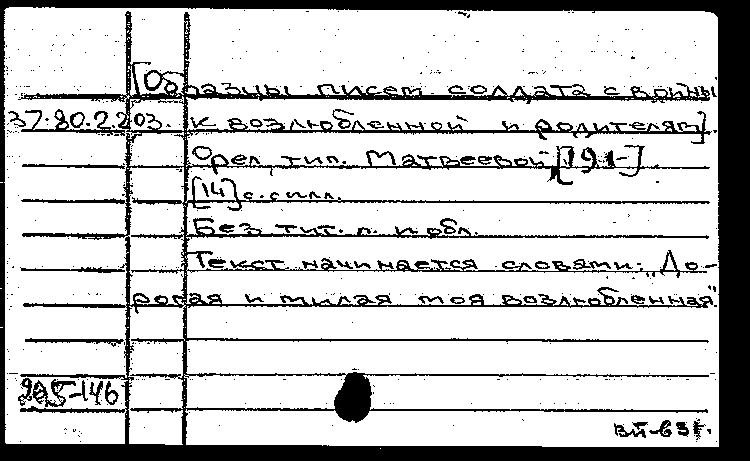 [Образцы писем солдата с войны
37.80.2203. к возлюбленной и родителям].
Орел, тип. Матвеевой, [191-]
[14] с. с илл.
Без тит. л. и обл.
Текст начинается словами: „До-
рогая и милая моя возлюбленная"
205-146